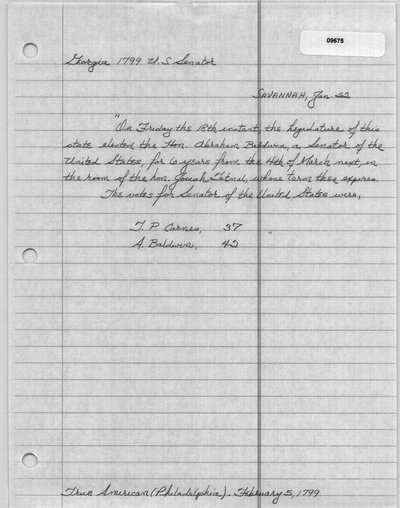 09675
Georgia 1799 U.S Senator
SAVANNAH, Jan. 22
"On Friday the 18th instant, the Legislature of this
state elected the Hon. Abraham Baldwin, a Senator of the
United States, for 6 years from the 4th of March next, in
the room of the hon. Josiah Tatnal, whose term then expires.
The votes for Senator of the United States were,
T. P. Carnes, 37
A. Baldwin, 42 "
True American (Philadelphia). February 5, 1799.